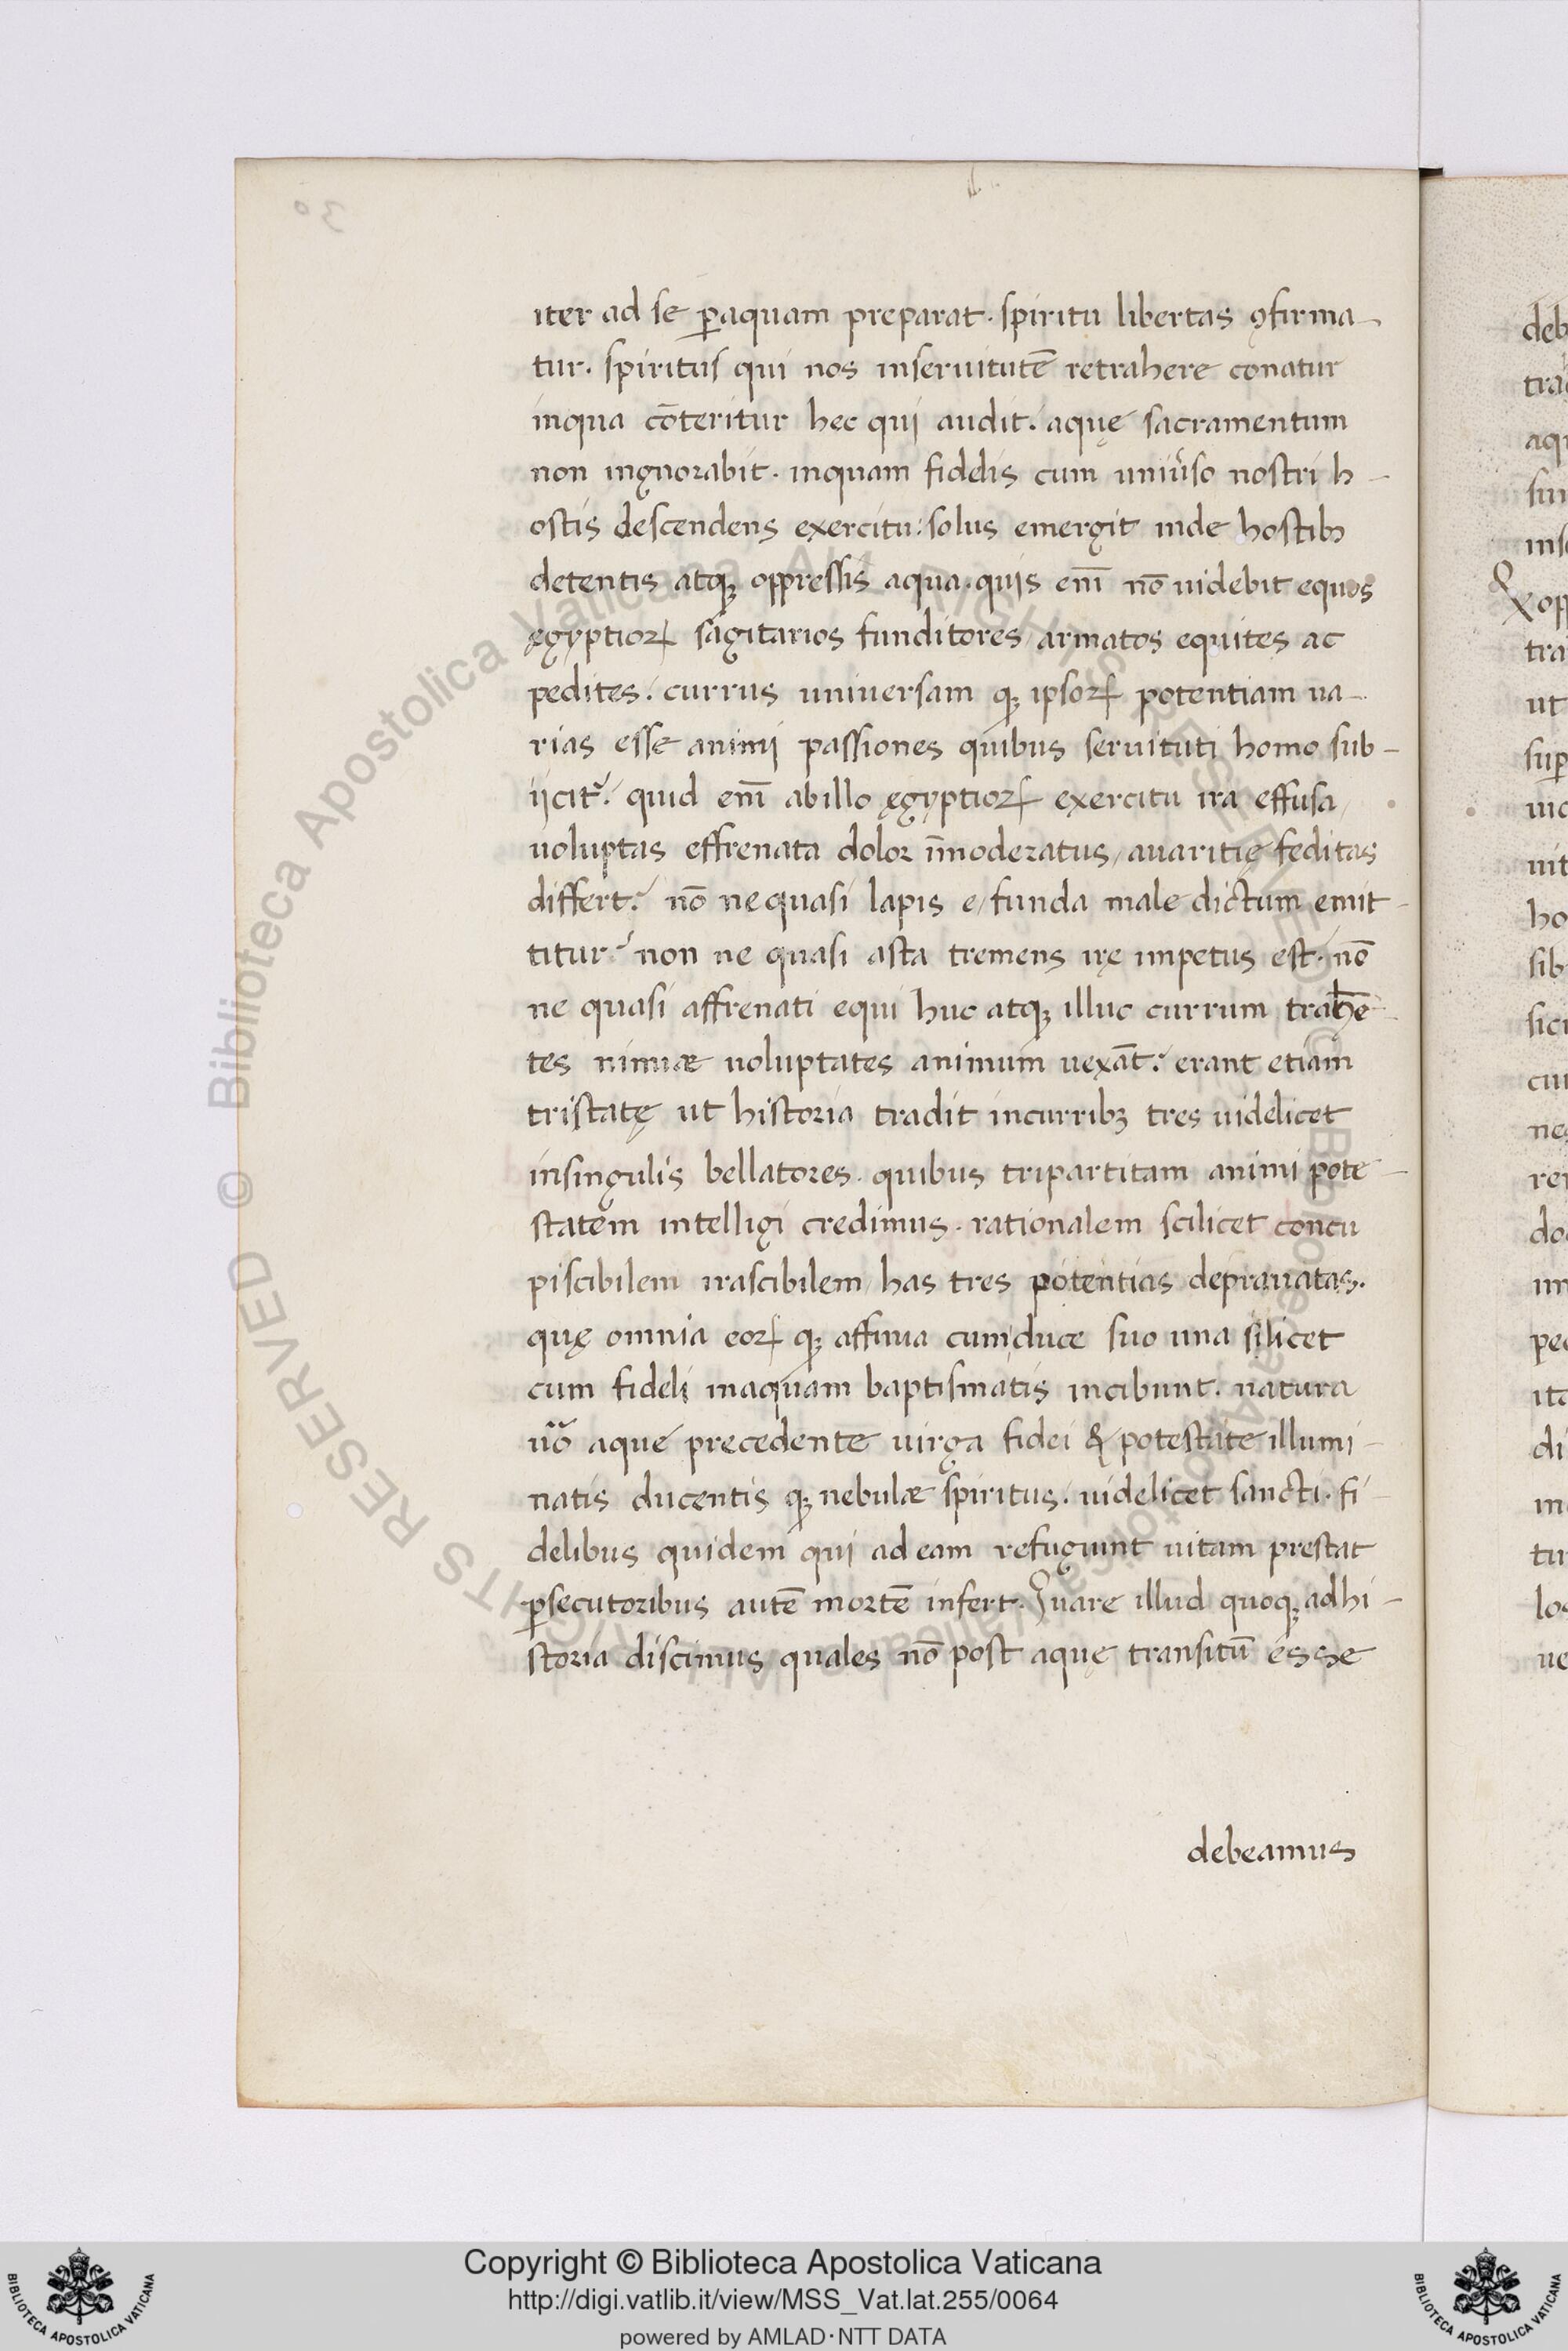 iter ad se ꝑaquam preparat. spiritu libertas ꝯfirma-
tur. spiritus qui nos inseruitutē retrahere conatur
inqua cōteritur hec qui audit. aquę sacramentum
non ingnorabit. inquam fidelis cum uniu̾so nostri h-
ostis descendens exercitu: solus emergit inde hostibꝫ
detentis atqꝫ oppressis aqua. quis enī nō uidebit equos
ęgyptioꝝ sagitarios funditores / armatos equites ac
pedites. currus uniuersam qꝫ ipsoꝝ potentiam ua-
rias esse animi passiones quibus seruituti homo sub-
ijcit᷑? quid enī abillo ęgyptioꝝ exercitu ira effusa /
uoluptas effrenata dolor īmoderatus / auaritię feditas
differt? nō nequasi lapis e/funda male dictum emit-
titur? non ne quasi asta tremens irę impetus est. nō
ne quasi affrenati equi huc atqꝫ illuc currum trahē-
tes nimiæ uoluptates animum uexāt? erant etiam
tristatę ut historia tradit incurribꝫ tres uidelicet
insingulis bellatores. quibus tripartitam animi pote-
statem intelligi credimus. rationalem scilicet concu
piscibilem irascibilem / has tres potentias deprauatas.
quę omnia eoꝝ qꝫ affinia cum duce suo una silicet
cum fideli inaquam baptismatis incibunt. natura
uō aque precedente uirga fidei & potestate illumi-
natis ducentis qꝫ nebulæ spiritus. uidelicet sancti. fi-
delibus quidem qui ad eam refugiunt uitam prestat
ꝑsecutoribus autē mortē infert. Quare illud quoqꝫ adhi-
storia discimus quales nō post aquę transitū esse
debeamus
Copyright © Biblioteca Apostolica Vaticana
http://digi.vatlib.it/view/MSS_Vat.lat.255/0064
powered by AMLAD·NTT DATA